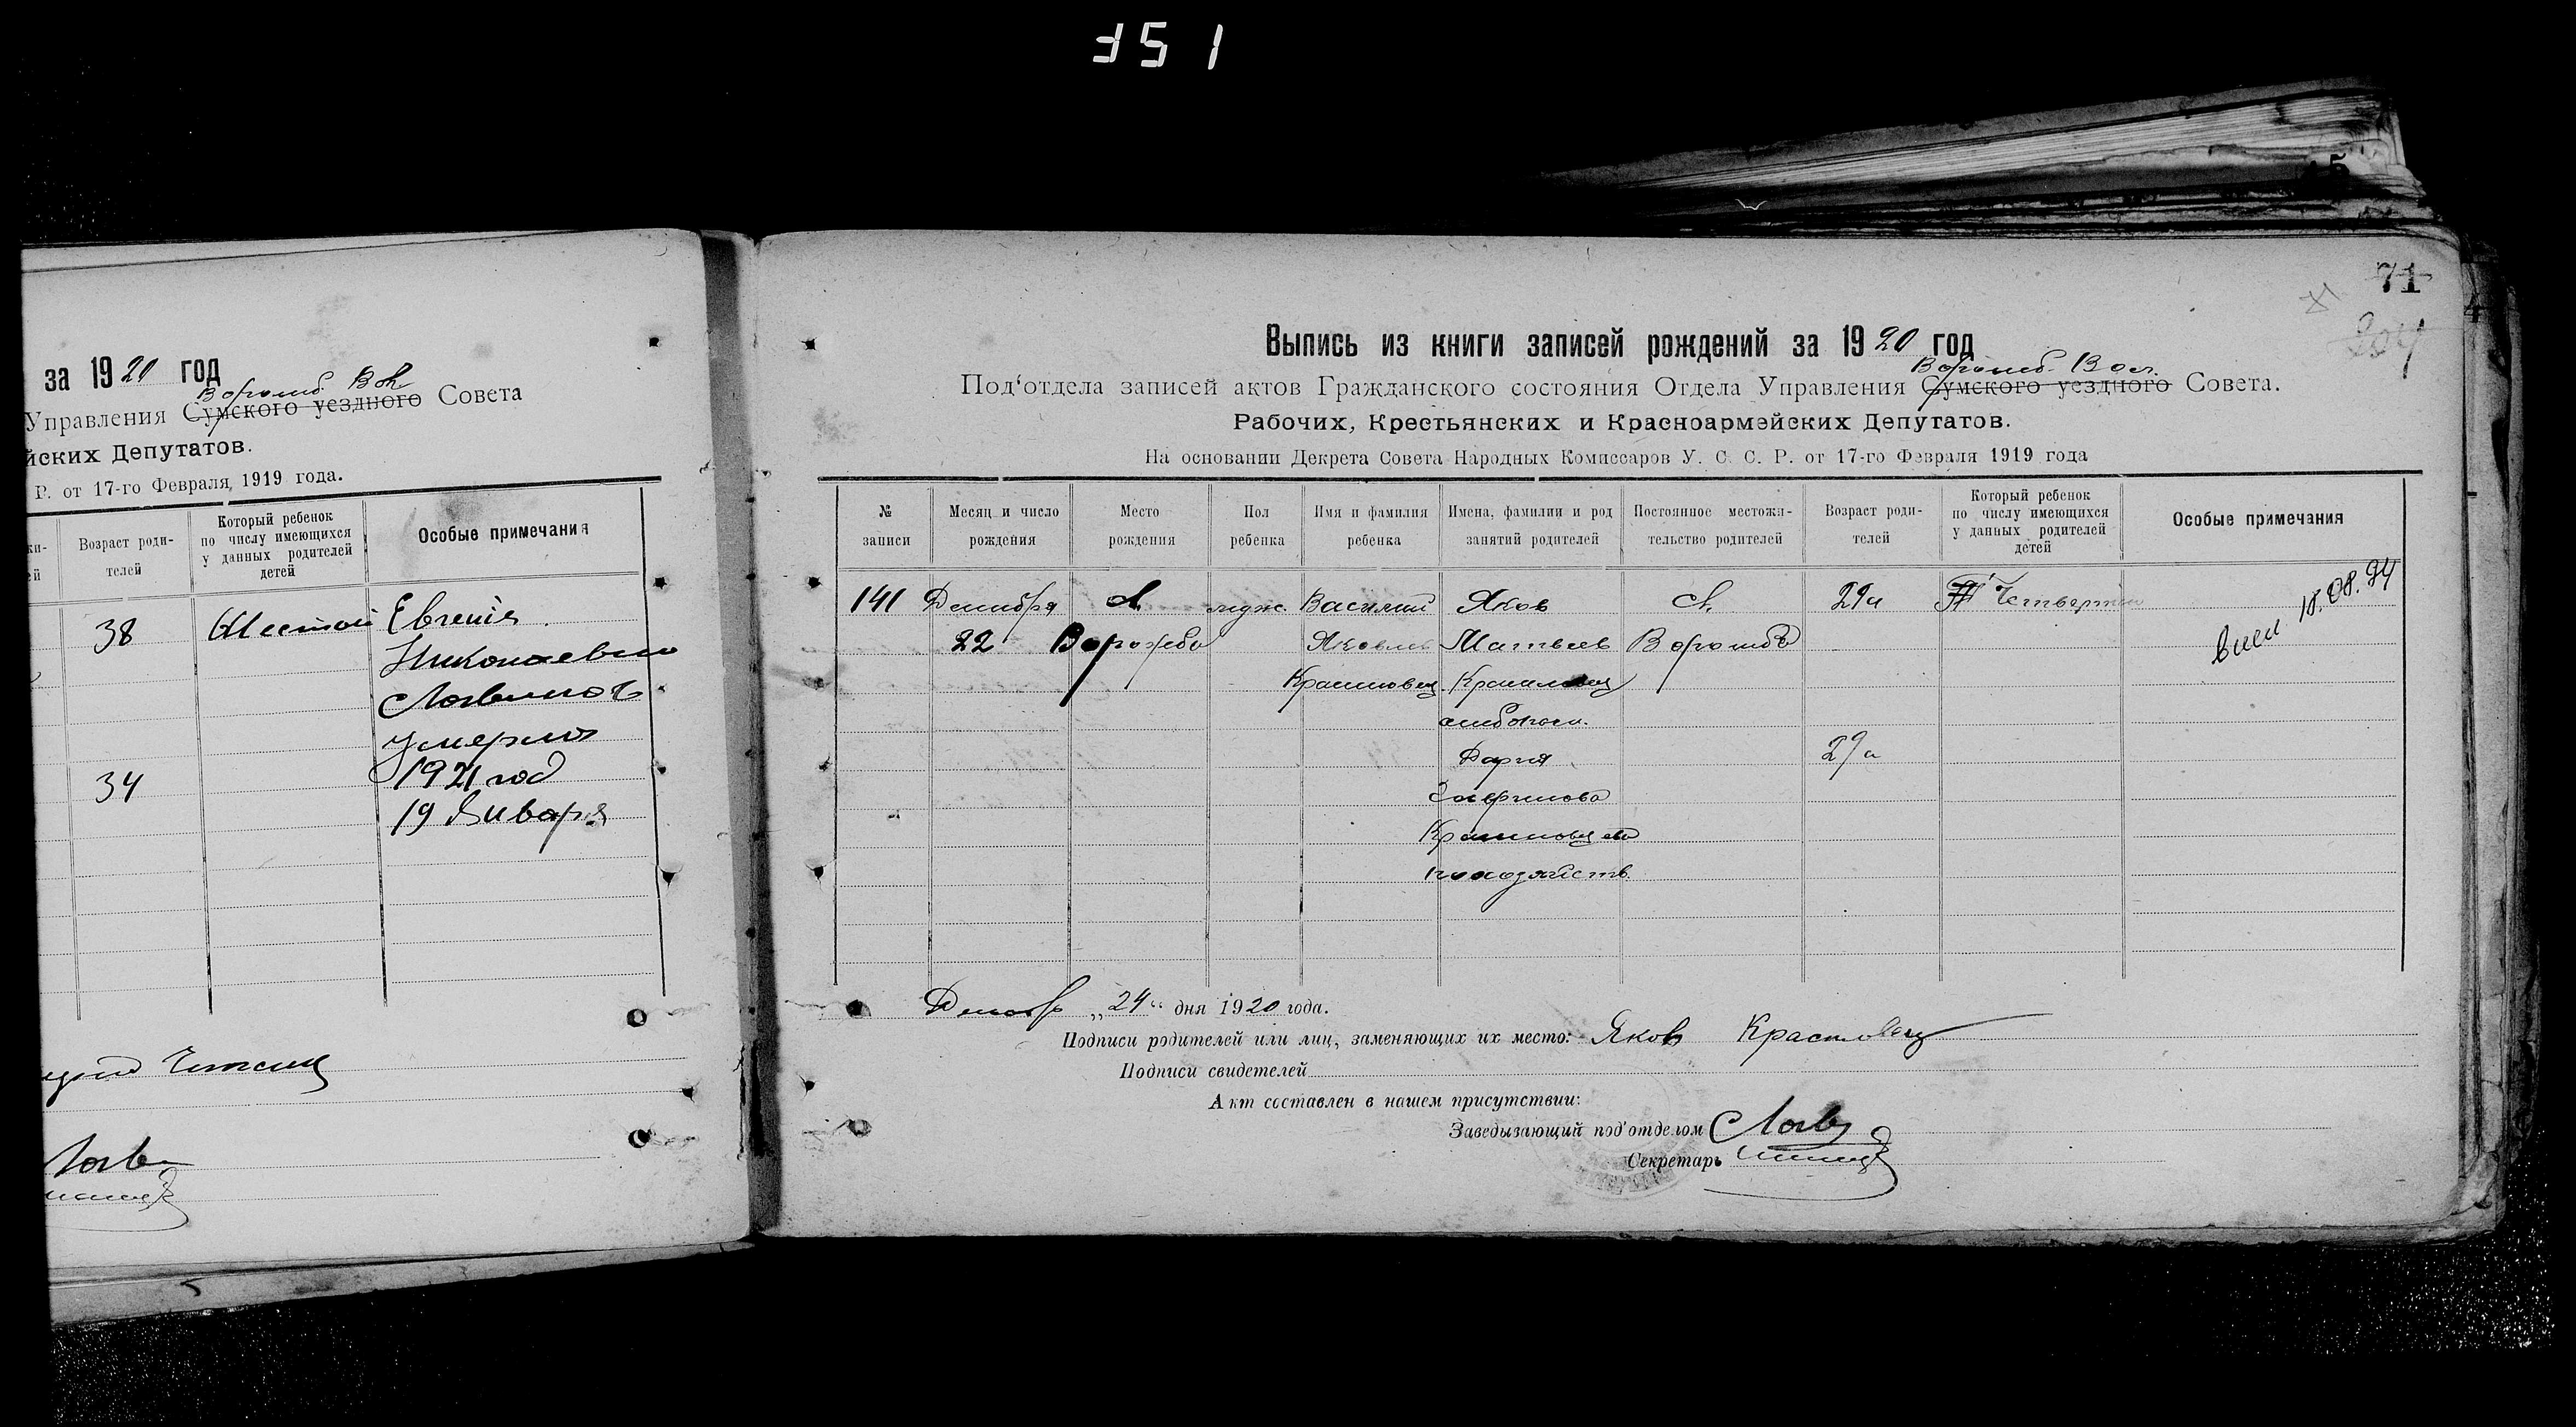 351
за 1920 год
Ворожб. Вол.
Управления Сумского уездного Совета
йских Депутатов.
Р. от 17-го Февраля, 1919 года.
Возраст роди-
телей
Который ребенок
по числу имеющихся
у данных родителей
детей
Особые примечания
38 Шестой Евгения
Николаевна
умерла
34 1921 год
19 Января
71
Выпись из книги записей рождений за 1920 год
Ворожб. Вол.
Под‘отдела записей актов Гражданского состояния Отдела Управления Сумского уездного Совета.
Рабочих, Крестьянских и Красноармейских Депутатов.
На основании Декрета Совета Народных Комиссаров У. С. С. Р. от 17-го Февраля 1919 года
№
записи
Месяц и число
рождения
Место
рождения
Пол
ребенка
Имя и фамилия
ребенка
Имена, фамилии и род
занятий родителей
Постоянное местожи-
тельство родителей
Возраст роди-
телей
Который ребенок
по числу имеющихся
у данных родителей
детей
Особые примечания
141 Декабря с. муж. Василий Яков с. 29 Четвертый 18.08.94
22 Ворожба Яковлев Матвеев Ворожба
Дария 29
Декабр „24“ дня 1920 года.
Подписи родителей или лиц, заменяющих их место: Яков
Подписи свидетелей
Акт составлен в нашем присутствии:
Заведывающий под‘отделом
Секретарь